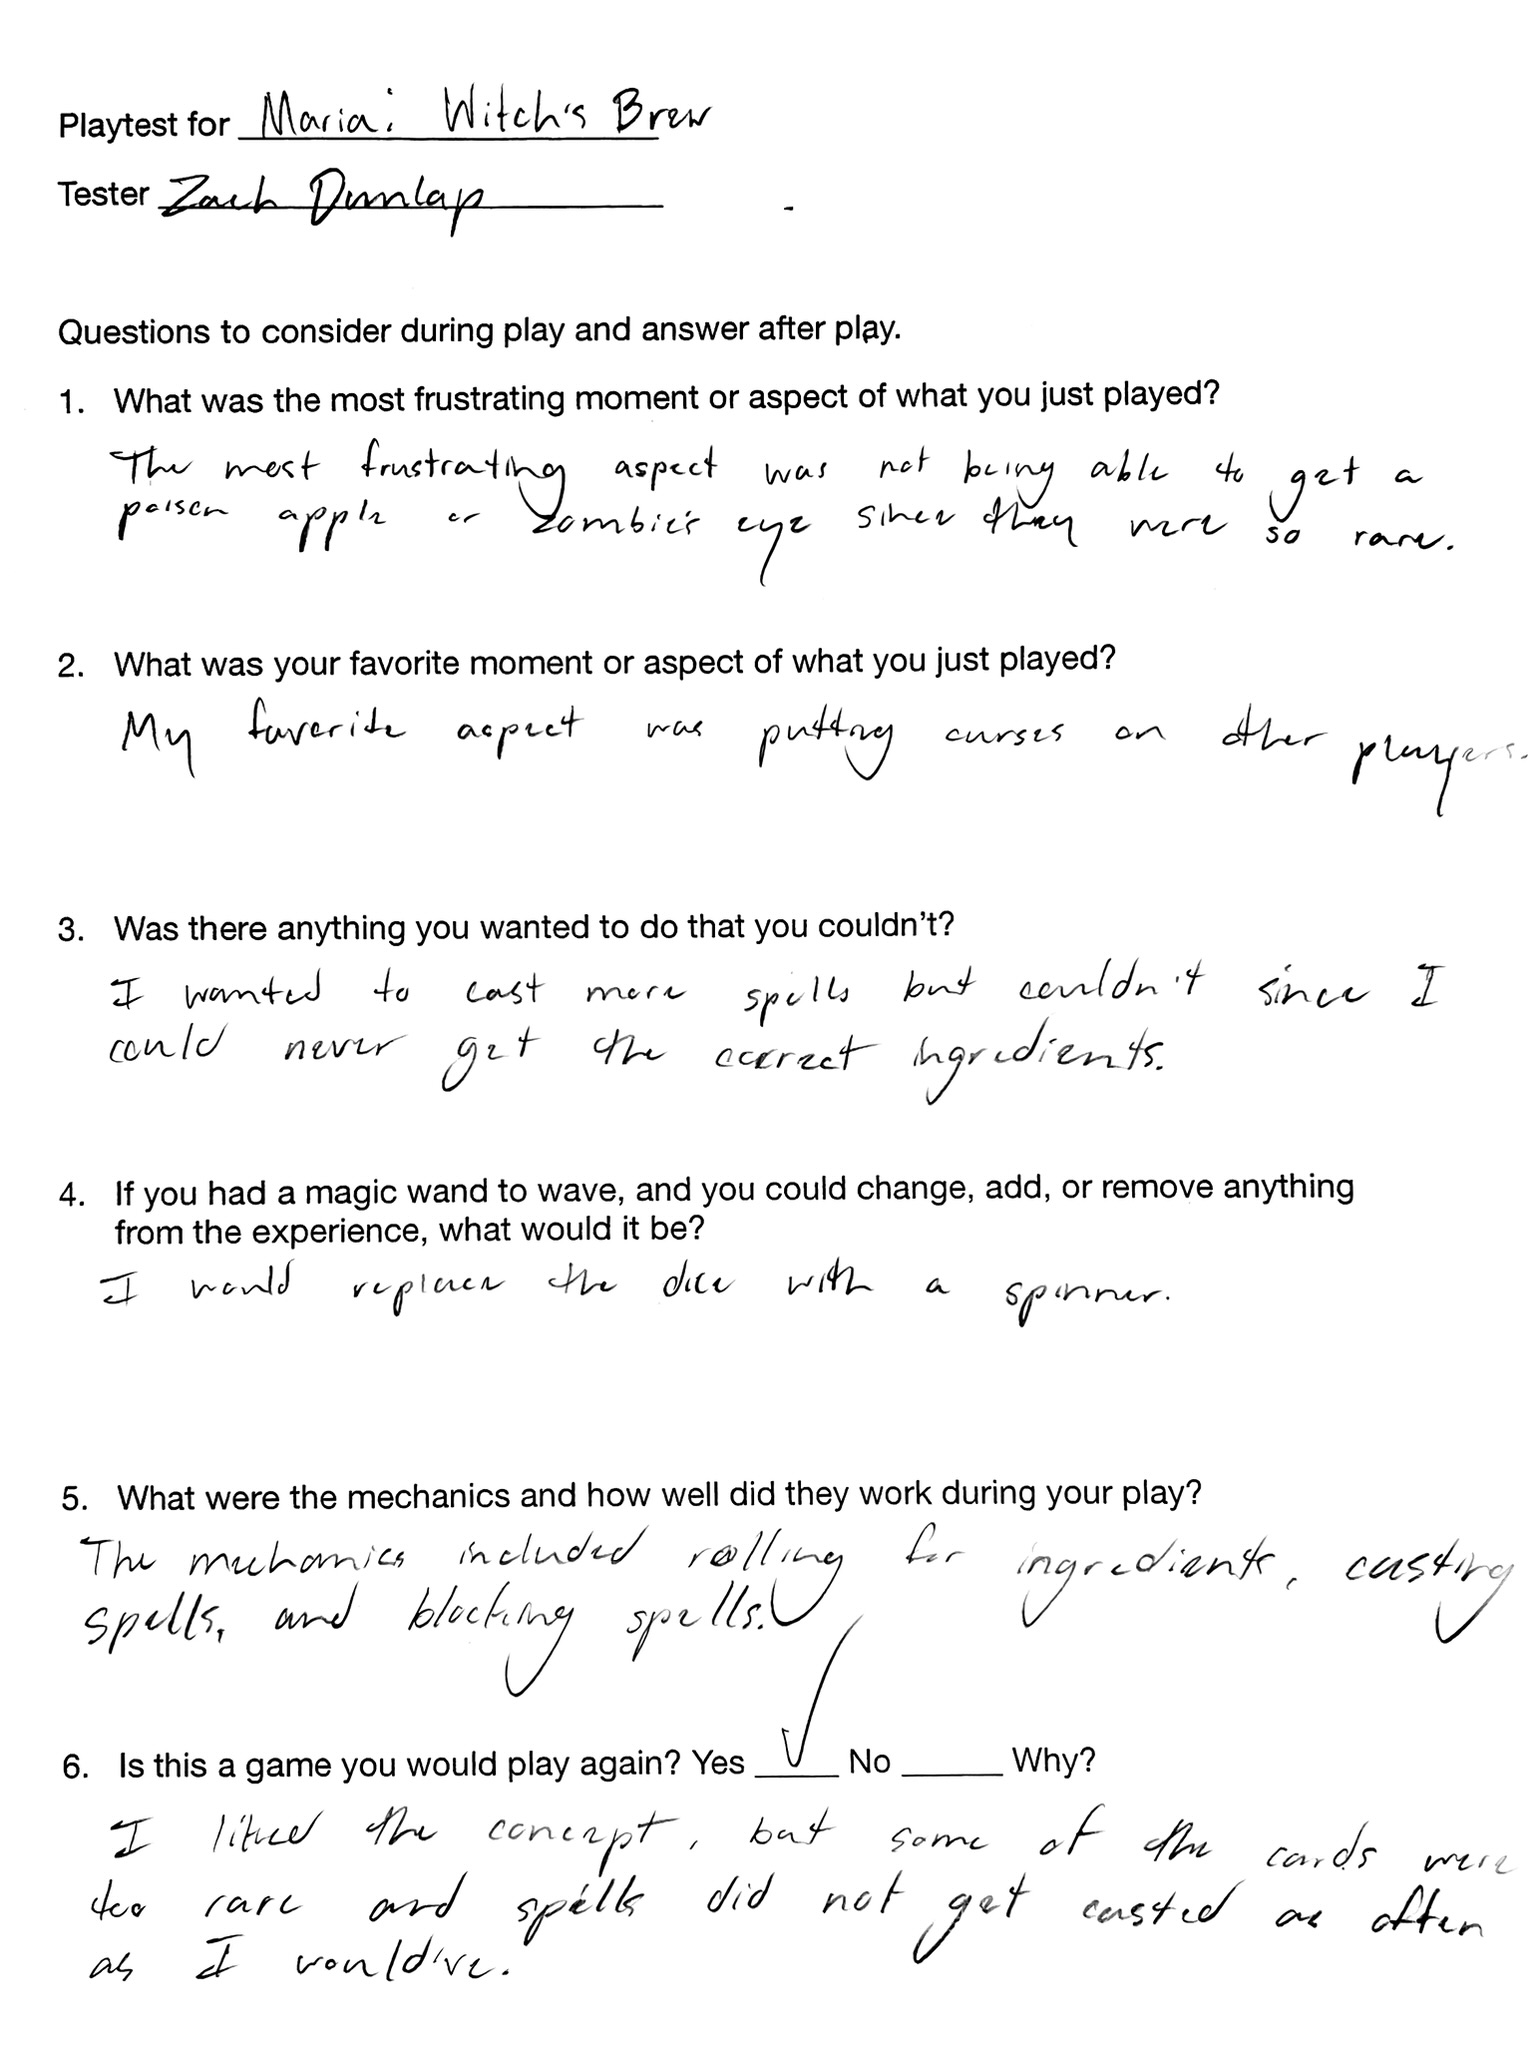 Playtest for Maria: Witch's Brew
Tester Zach Dunlap
Questions to consider during play and answer after play.
1. What was the most frustrating moment or aspect of what you just played?
The most frustrating aspect was not being able to get a
poison apple or zombie's eye since they were so rare.
2. What was your favorite moment or aspect of what you just played?
My favorite aspect was putting curses on other players.
3. Was there anything you wanted to do that you couldn't?
I wanted to cast more spells but couldn't since I
could never get the correct ingredients.
4. If you had a magic wand to wave, and you could change, add, or remove anything
from the experience, what would it be?
I would replace the dice with a spinner.
5. What were the mechanics and how well did they work during your play?
The mechanics included rolling for ingredients, casting
spells, and blocking spells.
6. Is this a game you would play again? Yes ✓ No ____ Why?
I liked the concept, but some of the cards were
too rare and spells did not get casted as often
as I would've.